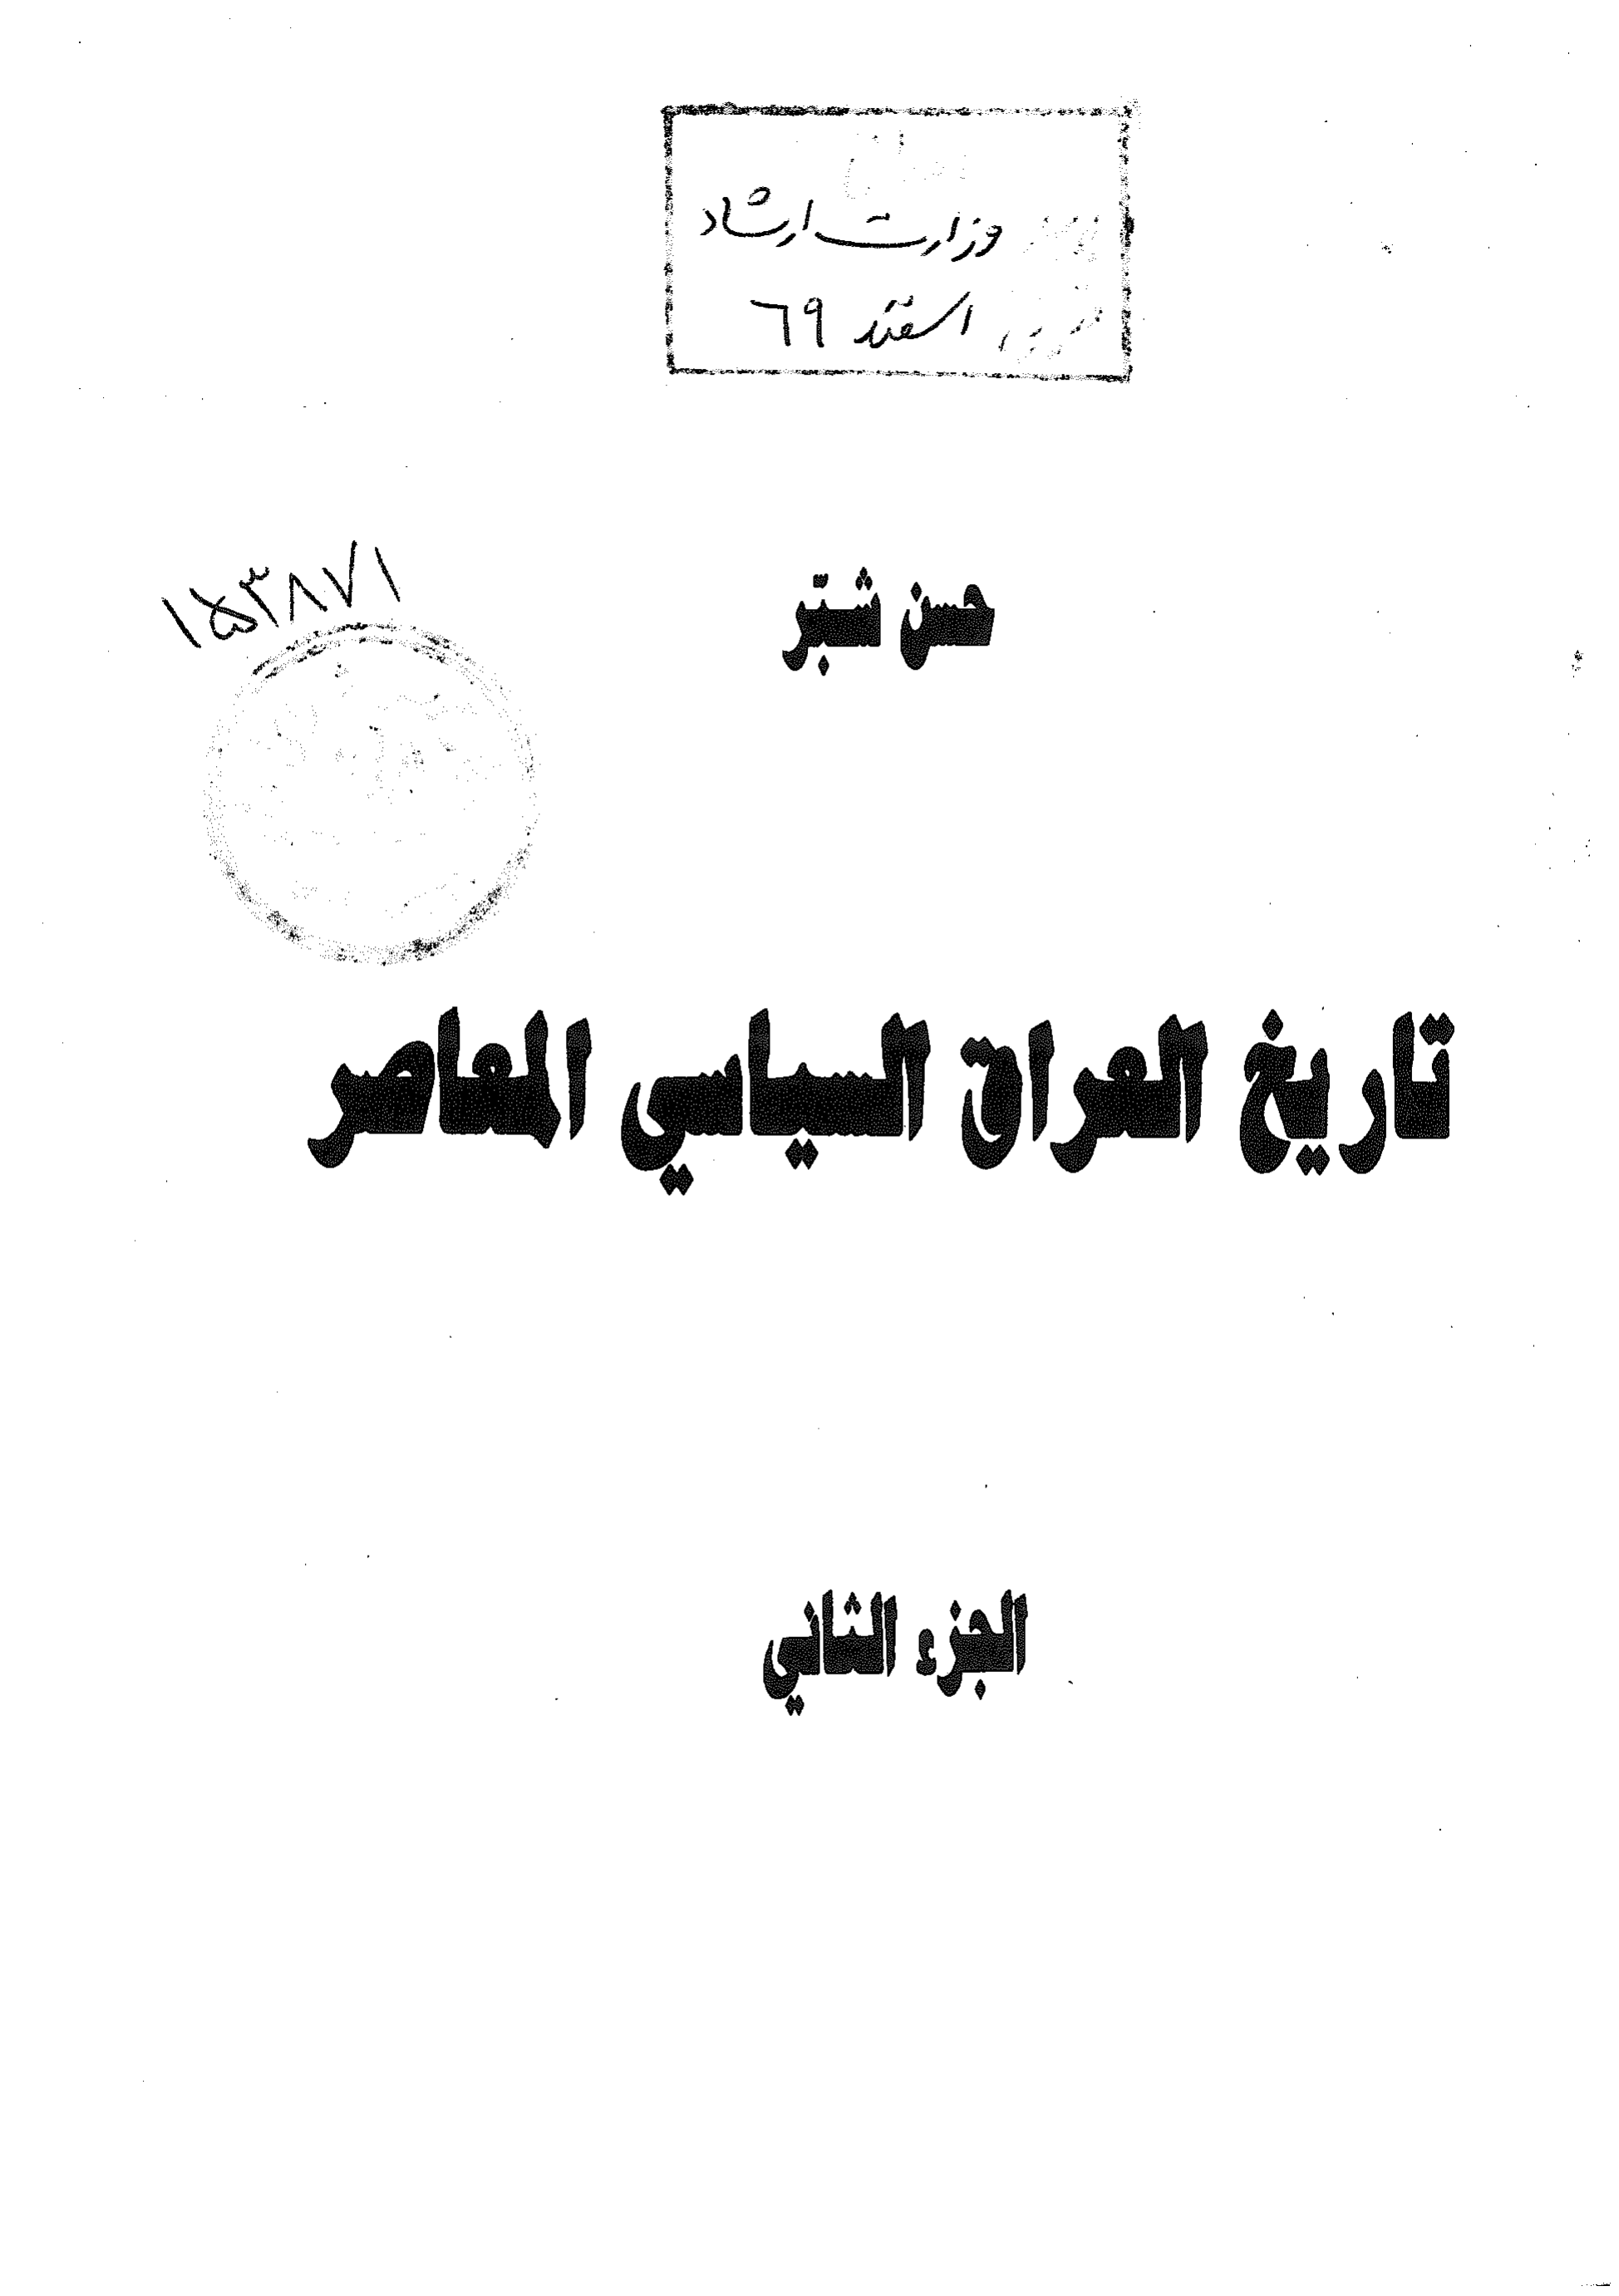 وزارت ارشاد
اسفند ٦٩
١۵٣٨٧١
حسن شبّر
تاريخ العراق السياسي المعاصر
الجزء الثاني